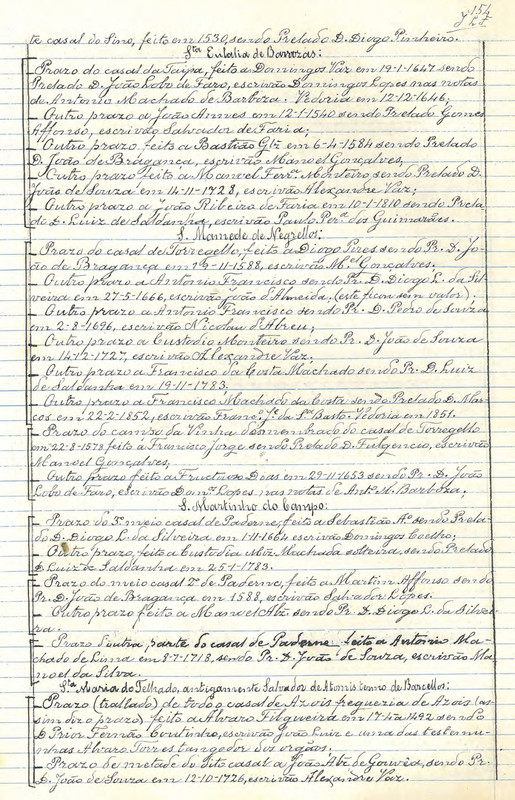 154
te casal do Sino, feito em 1530, sendo Prelado D. Diogo Pinheiro.
Sta Eulalia de Barrozas:
— Prazo do casal da Taipa, feito a Domingos Vaz em 19-1-1647 sendo
Prelado D. João Lobo de Faro, escrivão Domingos Lopes nas notas
de Antonio Machado de Barboza. Vedoria em 12-12-1646;
— Outro prazo a João Annes em 12-1-1540 sendo Prelado Gomes
Affonso, escrivão Salvador de Faria;
— Outro prazo feito a Bastião Glz em 6-4-1584 sendo Prelado
D. João de Bragança, escrivão Manoel Gonçalves,
— Outro prazo feito a Manoel Ferrª Monteiro sendo Prelado D.
João de Souza em 14-11-1728, escrivão Alexandre Vaz;
— Outro prazo a João Ribeiro de Faria em 10-1-1810 sendo Prela-
do D. Luiz de Saldanha, escrivão Paulo Perª dos Guimarães.
S. Mamede de Negrellos:
— Prazo do casal de Torregello, feito a Diogo Pires sendo Pr. D. Jo-
ão de Bragança em -11-1588, escrivão Mel Gonçalves.
— Outro prazo a Antonio Francisco sendo Pr. D. Diogo L. da Sil-
veira em 27-5-1666, escrivão João d'Almeida, (este ficou sem valor);
— Outro prazo a Antonio Francisco sendo Pr. D. Pedro de Souza
em 2-8-1696, escrivão Nicolau d'Abreu;
— Outro prazo a Custodio Monteiro sendo Pr. D. João de Souza
em 14-12-1727, escrivão Alexandre Vaz;
— Outro prazo a Francisco da Costa Machado sendo Pr. D. Luiz
de Saldanha em 19-11-1783.
— Outro prazo a Francisco Machado da Costa sendo Prelado D. Mar-
cos em 22-2-1852, escrivão Francº Jº da Sª Basto. Vedoria em 1851.
— Prazo do campo da Vinha desmenhado do casal de Torregello
em 22-8-1578 feito a Francisco Jorge sendo Prelado D. Fulgencio, escrivão
Manoel Gonçalves;
— Outro prazo feito a Fructuoso Dias em 29-11-1653 sendo Pr. D. João
Lobo de Faro, escrivão Domos Lopes nas notas de Antº M. Barboza;
S. Martinho do Campo:
— Prazo do 3º meio casal de Paderne, feito a Sebastião Aº sendo Prela-
do D. Diogo L. da Silveira em 1-11-1664 escrivão Domingos Coelho;
— Outro prazo, feito a Custodia Miz Machada solteira, sendo Prelado
D. Luiz de Saldanha em 25-1-1783.
— Prazo do meio casal 2º de Paderne, feito a Martim Affonso sendo
Pr. D. João de Bragança em 1588, escrivão Salvador Lopes.
— Outro prazo feito a Manoel Alz. sendo Pr. D. Diogo L. da Silvei-
ra.
— Prazo d'outra parte do casal de Paderne feito a Antonio Ma-
chado de Lima em 8-7-1718, sendo Pr. D. João de Souza, escrivão Ma-
noel da Silva.
Sta Maria do Telhado, antigamente Salvador de Atomis termo de Barcellos:
— Prazo (trallado) de todo o casal de Azois freguezia de Azois (as-
sim diz o prazo), feito a Alvaro Filgueira em 17-4-1492 sendo
D. Prior Fernão Coutinho, escrivão João Luiz e uma das testemu-
nhas Alvaro Torres tangedor dos orgãos.
— Prazo de metade do dito casal a João Alz de Gouvêa, sendo Pr.
D. João de Souza em 12-10-1726, escrivão Alexandre Vaz.